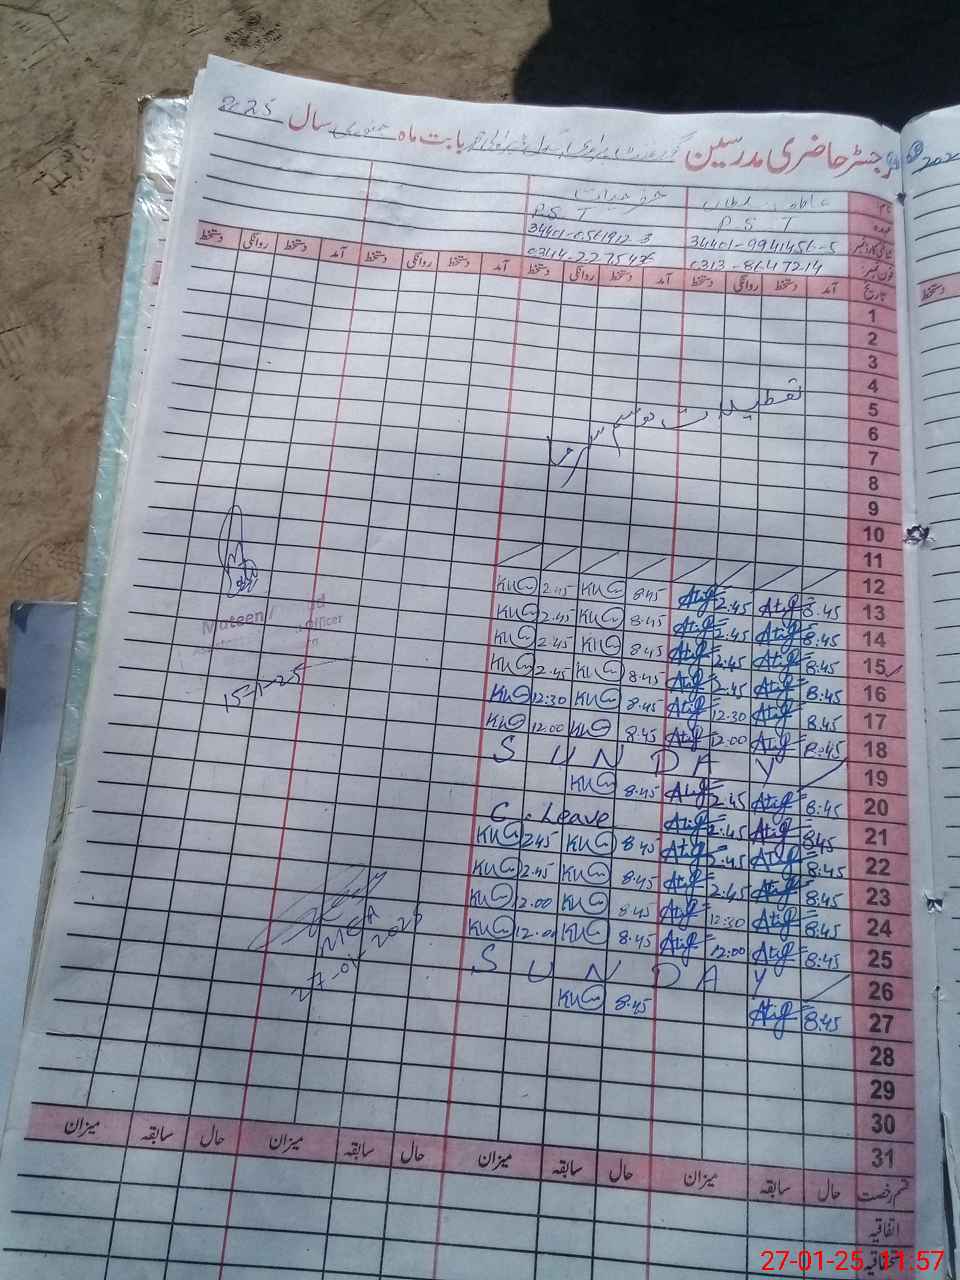 رجسٹر حاضری مدرسین بابت ماہ جنوری سال 2025
2025
نام
عہدہ P.S.T P.S.T
شناختی کارڈ نمبر 34401-9941456-5 34401-0561912-3
فون نمبر: 0313-8647214
تاریخ آمد دستخط روانگی دستخط آمد دستخط روانگی دستخط آمد دستخط روانگی دستخط آمد دستخط روانگی دستخط
دستخط
1
2
3
4
تعطیلات موسم سرما
5
6
7
8
9
10
11
12
13 8:45 Atif 2:45 Atif 8:45 KuC 2:45 KuC
14 8:45 Atif 2:45 Atif 8:45 KuC 2:45 KuC
15 8:45 Atif 2:45 Atif 8:45 KuC 2:45 KuC
16 8:45 Atif 2:45 Atif 8:45 KuC 2:45 KuC
17 8:45 Atif 12:30 Atif 8:45 KuC 12:30 KuC
18 8:45 Atif 12:00 Atif 8:45 KuC 12:00 KuC
19 SUNDAY
20 8:45 Atif 2:45 Atif 8:45 KuC
21 8:45 Atif 2:45 Atif C. Leave
22 8:45 Atif 2:45 Atif 8:45 KuC 2:45 KuC
23 8:45 Atif 2:45 Atif 8:45 KuC 2:45 KuC
24 8:45 Atif 12:30 Atif 8:45 KuC 12:00 KuC
25 8:45 Atif 12:00 Atif 8:45 KuC 12:00 KuC
26 SUNDAY
27 8:45 Atif 8:45 KuC
28
29
30
31
Mateen
officer
15-1-25
MEA
27-01-2025
قسم رخصت حال سابقہ میزان حال سابقہ میزان حال سابقہ میزان حال سابقہ میزان
اتفاقیہ
استحقاقیہ
27-01-25 11:57